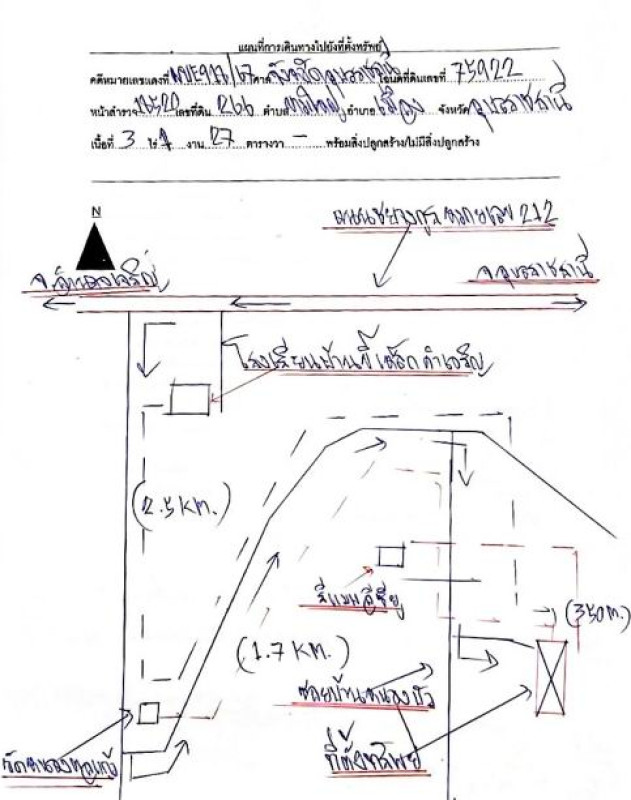 แผนที่การเดินทางไปยังที่ตั้งทรัพย์
คดีหมายเลขแดงที่ /67 ศาล จังหวัดอุบลราชธานี โฉนดที่ดินเลขที่ 75922
หน้าสำรวจ เลขที่ดิน 266 ตำบล อำเภอ เมือง จังหวัด อุบลราชธานี
เนื้อที่ 3 ไร่ 1 งาน 27 ตารางวา – พร้อมสิ่งปลูกสร้าง/ไม่มีสิ่งปลูกสร้าง
ถนนชยางกูร หมายเลข 212
N
จ.อำนาจเจริญ
จ.อุบลราชธานี
โรงเรียนบ้านขี้เหล็กคำเจริญ
(2.5 KM.)
(350 m.)
(1.7 KM.)
ซอยบ้านหนองบัว
ที่ตั้งทรัพย์